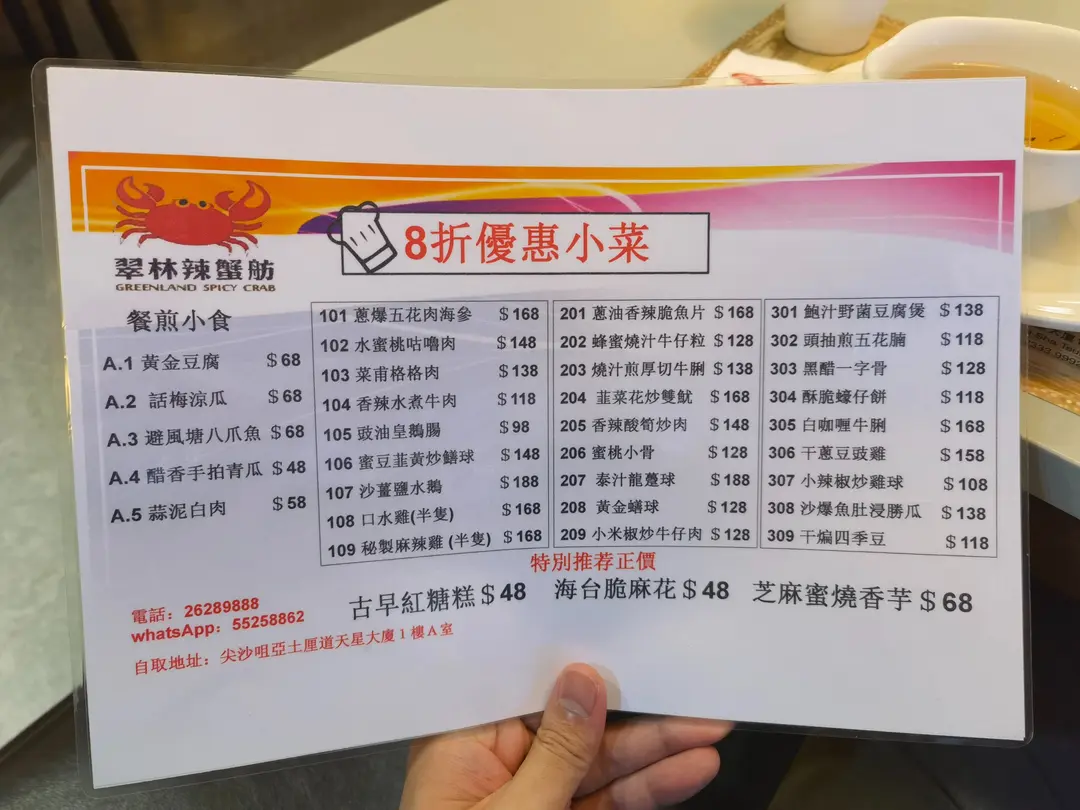 8折優惠小菜
翠林辣蟹舫
GREENLAND SPICY CRAB
餐煎小食
A.1 黃金豆腐 $68
A.2 話梅涼瓜 $68
A.3 避風塘八爪魚 $68
A.4 醋香手拍青瓜 $48
A.5 蒜泥白肉 $58
101 蔥爆五花肉海參 $168
102 水蜜桃咕嚕肉 $148
103 菜甫格格肉 $138
104 香辣水煮牛肉 $118
105 豉油皇鵝腸 $98
106 蜜豆韮黃炒鱔球 $148
107 沙薑鹽水鵝 $188
108 口水雞(半隻) $168
109 秘製麻辣雞 (半隻) $168
201 蔥油香辣脆魚片 $168
202 蜂蜜燒汁牛仔粒 $128
203 燒汁煎厚切牛脷 $138
204 韮菜花炒雙魷 $168
205 香辣酸筍炒肉 $148
206 蜜桃小骨 $128
207 泰汁龍躉球 $188
208 黃金鱔球 $128
209 小米椒炒牛仔肉 $128
301 鮑汁野菌豆腐煲 $138
302 頭抽煎五花腩 $118
303 黑醋一字骨 $128
304 酥脆蠔仔餅 $118
305 白咖喱牛脷 $168
306 干蔥豆豉雞 $158
307 小辣椒炒雞球 $108
308 沙爆魚肚浸勝瓜 $138
309 干煸四季豆 $118
特別推荐正價
古早紅糖糕 $48 海台脆麻花 $48 芝麻蜜燒香芋 $68
電話：26289888
whatsApp：55258862
自取地址：尖沙咀亞士厘道天星大廈1樓A室